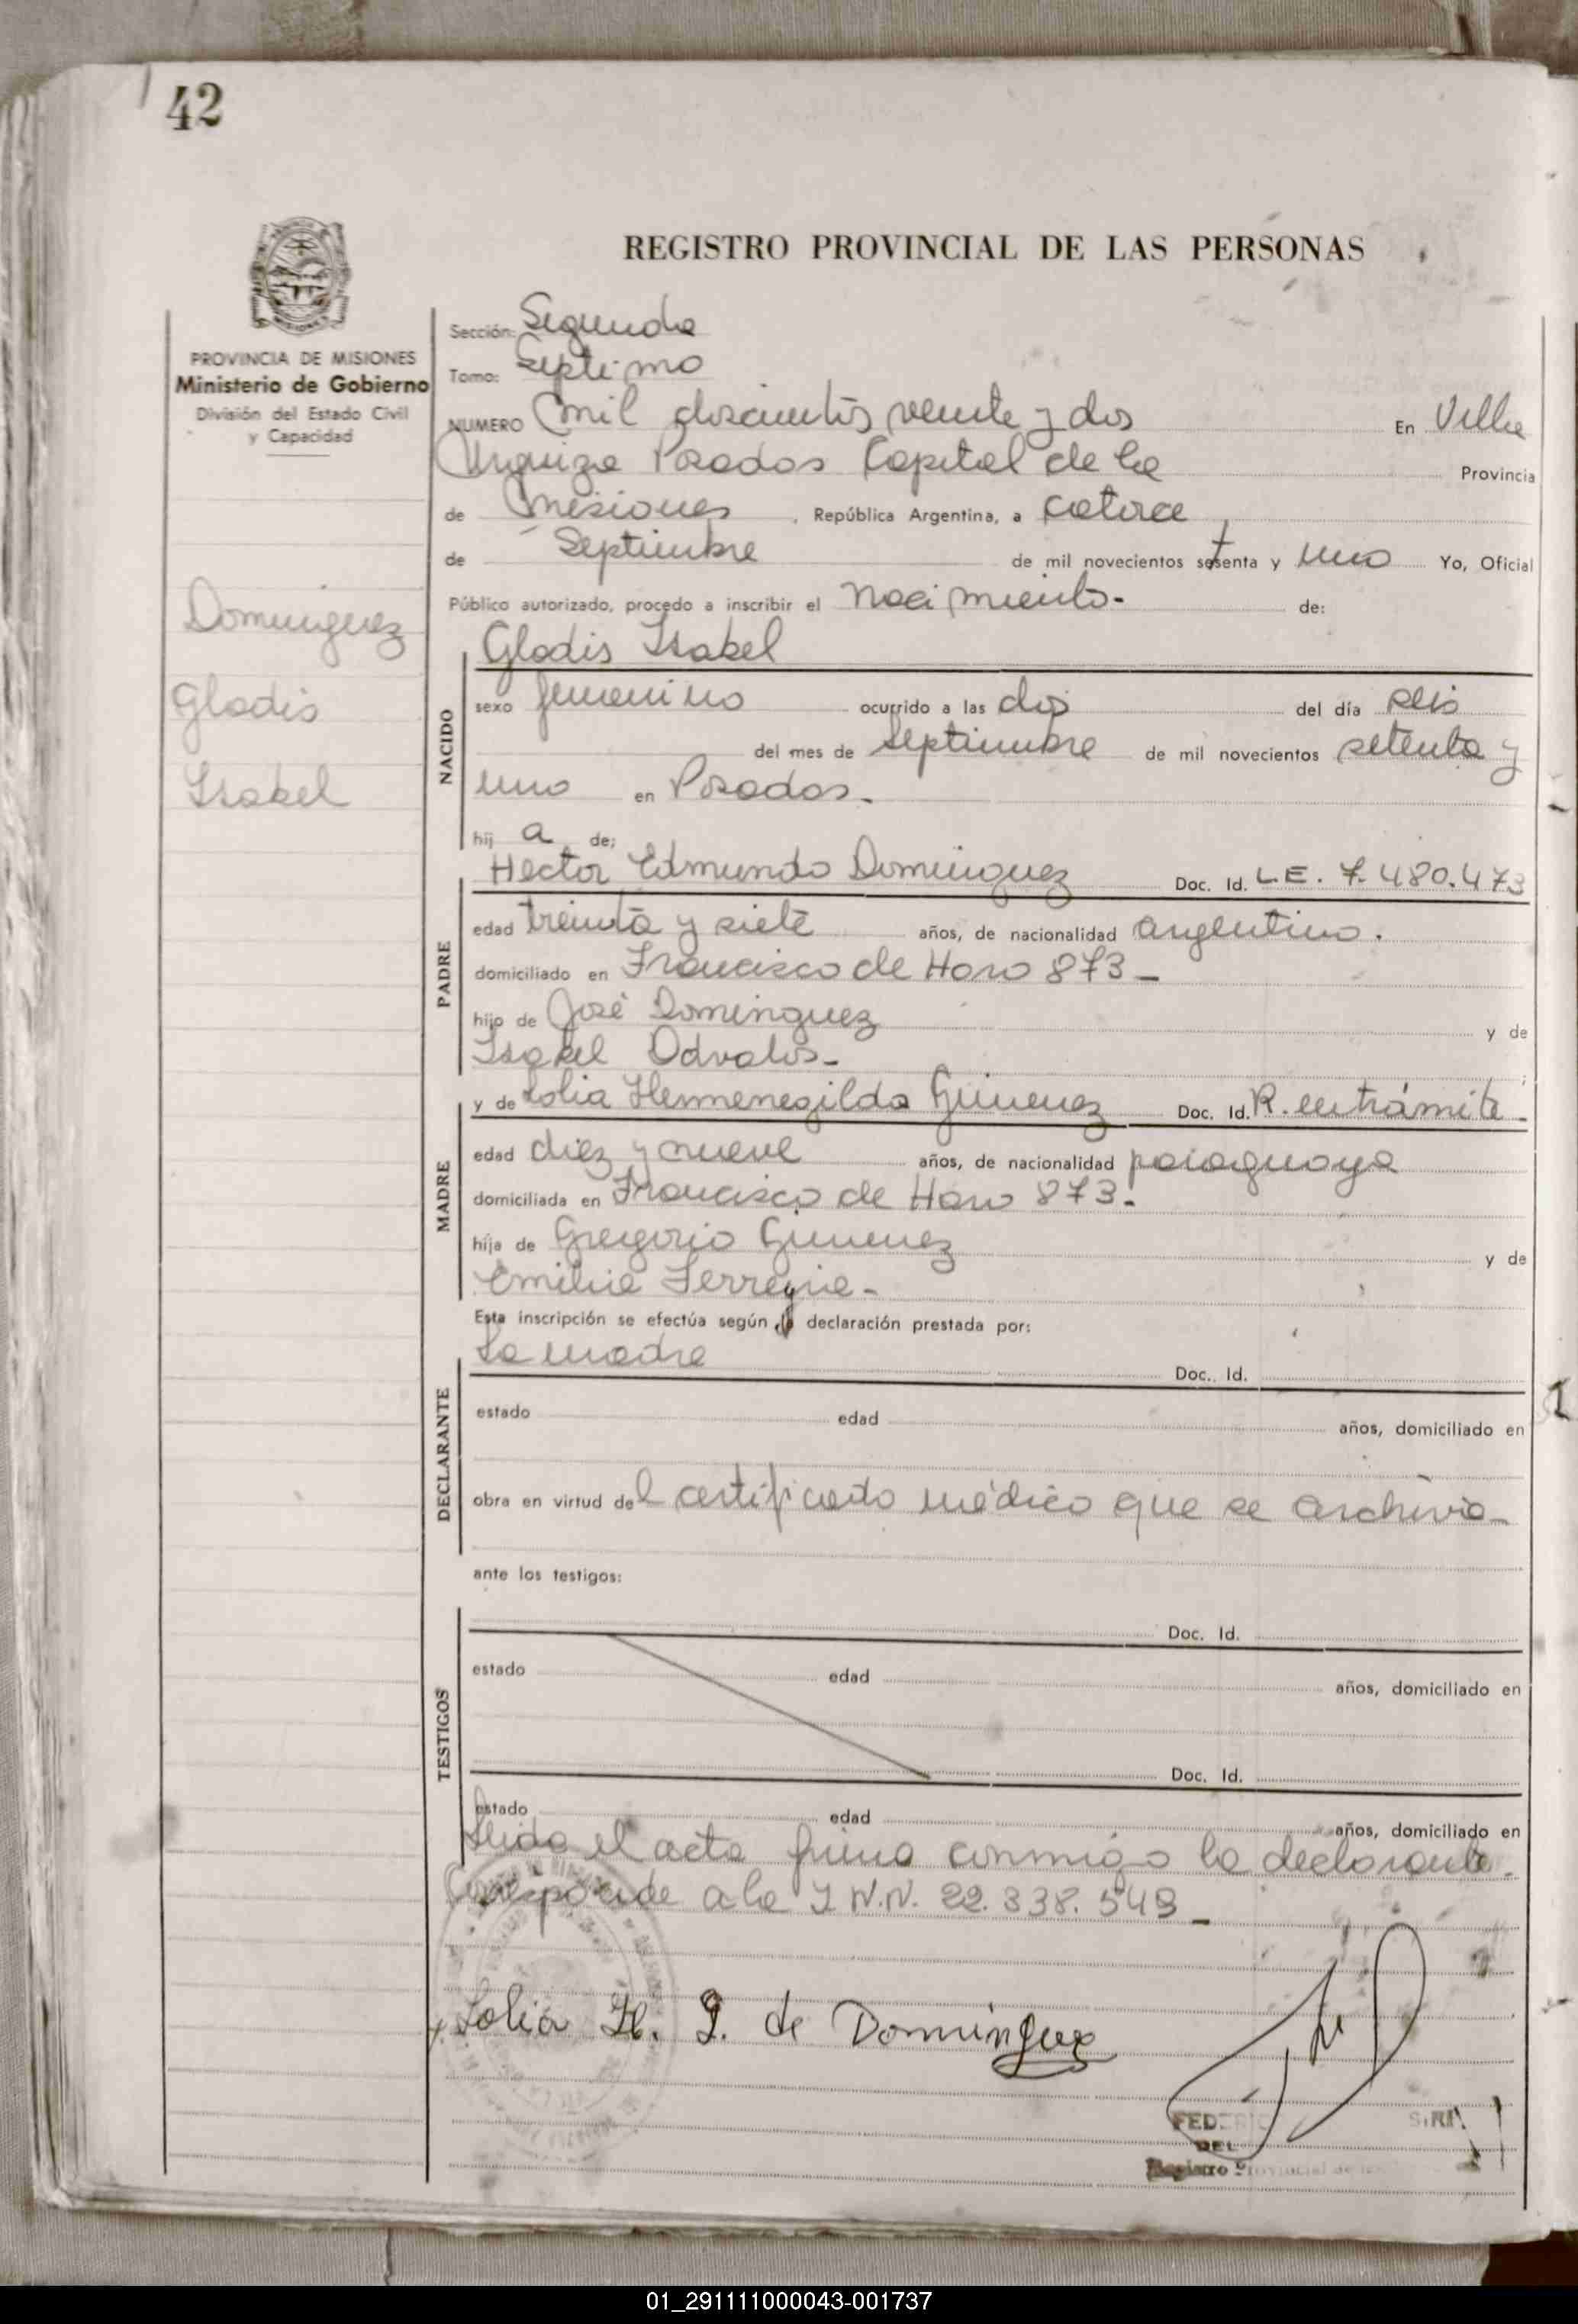 42
REGISTRO PROVINCIAL DE LAS PERSONAS
PROVINCIA DE MISIONES
Ministerio de Gobierno
División del Estado Civil
y Capacidad
Dominguez
Gladis
Isabel
Sección: Segunda
Tomo: Septimo
NUMERO mil doscientos veinte y dos En Villa
Urquiza Posadas Capital de la Provincia
de Misiones, República Argentina, a catorce
de Septiembre de mil novecientos setenta y uno Yo, Oficial
Público autorizado, procedo a inscribir el nacimiento- de:
NACIDO
Gladis Isabel
sexo femenino ocurrido a las dos del día seis
del mes de septiembre de mil novecientos setenta y
uno en Posadas.-
hij a de;
PADRE
Hector Edmundo Dominguez Doc. Id. L.E. 7.480.473
edad treinta y siete años, de nacionalidad argentino.
domiciliado en Francisco de Haro 873-
hijo de José Dominguez y de
Isabel Odvalos-
MADRE
y de Lolia Hermenegilda Gimenez Doc. Id. R. en trámite-
edad diez y nueve años, de nacionalidad paraguaya
domiciliada en Francisco de Haro 873.-
hija de Gregorio Gimenez y de
Emilia Ferreyra-
Esta inscripción se efectúa según la declaración prestada por:
DECLARANTE
La madre Doc. Id.
estado edad años, domiciliado en
obra en virtud del certificado médico que se archiva-
ante los testigos:
TESTIGOS
Doc. Id.
estado edad años, domiciliado en
Doc. Id.
estado edad años, domiciliado en
Leida el acta firma conmigo la declarante.
Corresponde a la I.N.N. 22.338.549-
Lolia H. G. de Dominguez
Registro Provincial de
01_291111000043-001737